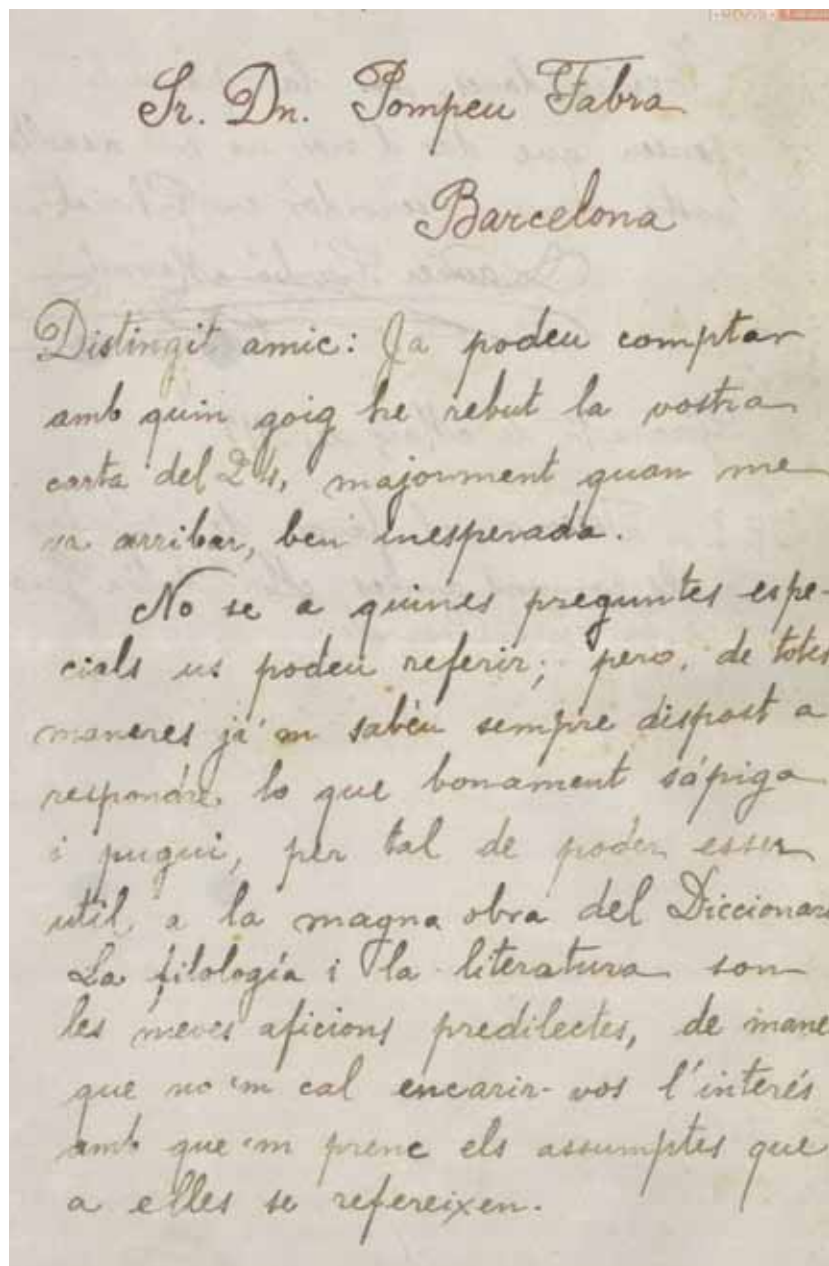 Sr. Dn. Pompeu Fabra
Barcelona
Distingit amic: Ja podeu comptar
amb quin goig he rebut la vostra
carta del 24, majorment quan me
va arribar, ben inesperada.
No se a quines preguntes espe-
cials us podeu referir; pero, de totes
maneres ja'm sabéu sempre dispost a
respondre lo que bonament sápiga
i pugui, per tal de poder esser
util a la magna obra del Diccionari
La filología i la literatura son
les meves aficions predilectes, de mane
que no'm cal encarir-vos l'interés
amb que'm prenc els assumptes que
a elles se refereixen.